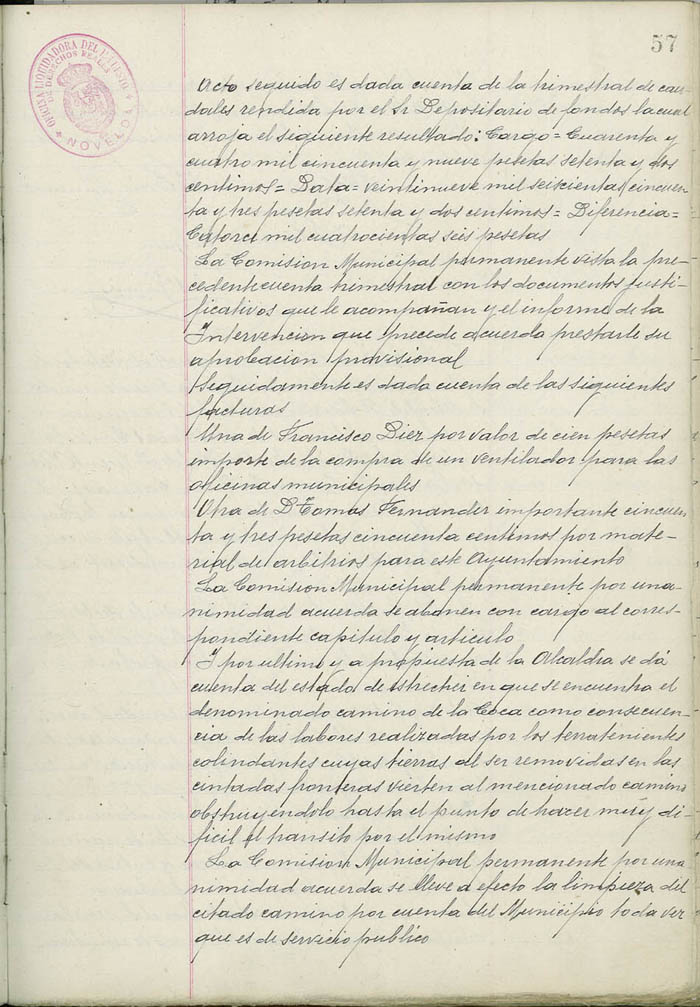 57
OFICINA LIQUIDADORA DEL IMPUESTO
DE DERECHOS REALES
* NOVELDA *
Acto seguido es dada cuenta de la trimestral de cau-
dales rendida por el Sr Depositario de fondos la cual
arroja el siguiente resultado: Cargo = Cuarenta y
cuatro mil cincuenta y nueve pesetas setenta y dos
centimos = Data = veintinueve mil seiscientas cincuen-
ta y tres pesetas setenta y dos centimos = Diferencia =
Catorce mil cuatrocientas seis pesetas
La Comision Municipal permanente vista la pre-
cedente cuenta trimestral con los documentos justi-
ficativos que le acompañan y el informe de la
Intervencion que precede acuerda prestarle su
aprobacion provisional
Seguidamente es dada cuenta de las siguientes
facturas
Una de Francisco Diez por valor de cien pesetas
importe de la compra de un ventilador para las
oficinas municipales
Otra de D Tomas Fernander importante cincuen-
ta y tres pesetas cincuenta centimos por mate-
rial de arbitrios para este Ayuntamiento
La Comision Municipal permanente por una-
nimidad acuerda se abonen con cargo al corres-
pondiente capitulo y articulo
Y por ultimo y a propuesta de la Alcaldia se dá
cuenta del estado de estrecher en que se encuentra el
denominado camino de la Coca como consecuen-
cia de las labores realizadas por los terratenientes
colindantes cuyas tierras al ser removidas en las
cintadas fronteras vierten al mencionado camino
obstruyendolo hasta el punto de hacer muy di-
ficil el transito por el mismo
La Comision Municipal permanente por una-
nimidad acuerda se lleve a efecto la limpieza del
citado camino por cuenta del Municipio toda ver
que es de servicio publico